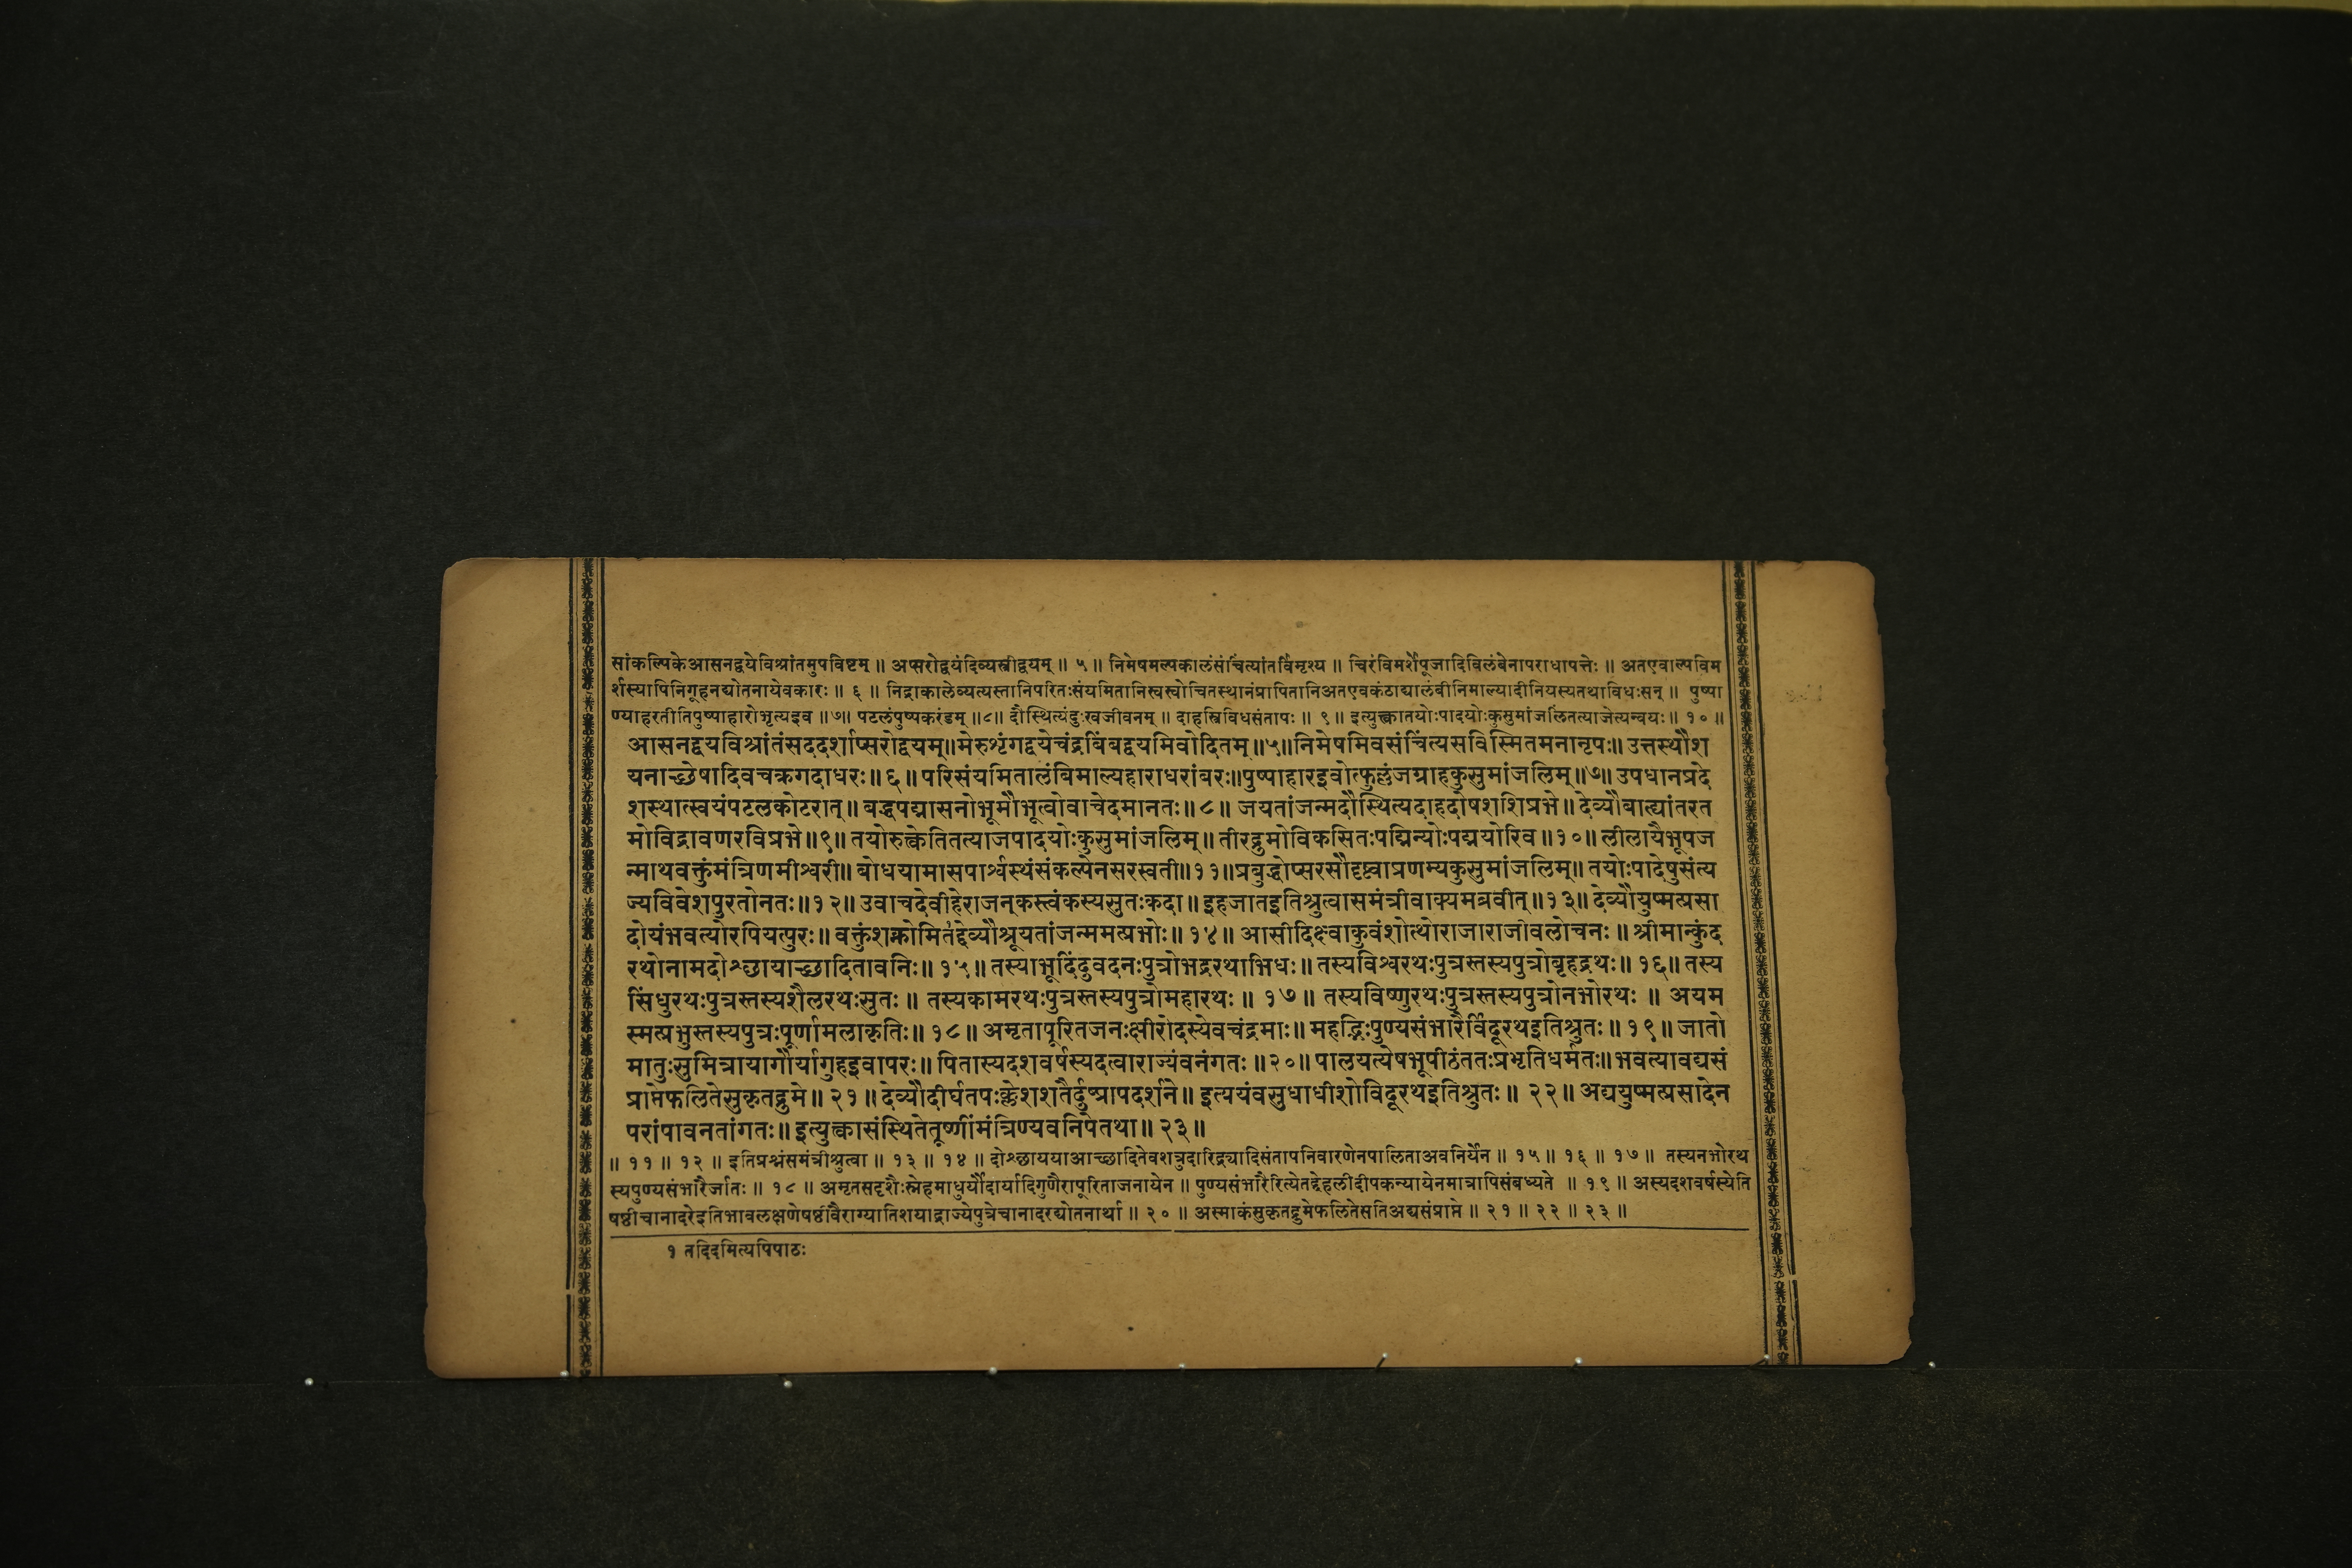 सांकल्पिकेआसनद्वयेविश्रांतमुपविष्टम् ॥ अप्सरोद्वयंदिव्यस्त्रीद्वयम् ॥ ५ ॥ निमेषमल्पकालंसंचिंत्यांतर्विमृश्य ॥ चिरंविमर्शेपूजादिविलंबेनापराधापत्तेः ॥ अतएवाल्पविम
र्शस्यापिनिगूहनद्योतनायेवकारः ॥ ६ ॥ निद्राकालेव्यत्यस्तानिपरितःसंयमितानिस्वस्वोचितस्थानंप्रापितानिअतएवकंठाद्यालंबीनिमाल्यादीनियस्यतथाविधःसन् ॥ पुष्पा
ण्याहरतीतिपुष्पाहारोभृत्यइव ॥७॥ पटलंपुष्पकरंडम् ॥८॥ दौस्थित्यंदुःखजीवनम् ॥ दाहस्त्रिविधसंतापः ॥ ९ ॥ इत्युक्त्वातयोःपादयोःकुसुमांजलिंतत्याजेत्यन्वयः ॥ १० ॥
आसनद्वयविश्रांतंसददर्शाप्सरोद्वयम्॥मेरुशृंगद्वयेचंद्रबिंबद्वयमिवोदितम्॥५॥निमेषमिवसंचिंत्यसविस्मितमनानृपः॥ उत्तस्थौश
यनाच्छेषादिवचक्रगदाधरः॥६॥ परिसंयमितालंबिमाल्यहाराधरांबरः॥पुष्पाहारइवोत्फुल्लंजग्राहकुसुमांजलिम्॥७॥ उपधानप्रदे
शस्थात्स्वयंपटलकोटरात्॥ बद्धपद्मासनोभूमौभूत्वोवाचेदमानतः॥८॥ जयतांजन्मदौस्थित्यदाहदोषशशिप्रभे॥ देव्यौबाह्यांतरत
मोविद्रावणरविप्रभे॥९॥ तयोरुक्त्वेतितत्याजपादयोःकुसुमांजलिम्॥ तीरद्रुमोविकसितःपद्मिन्योःपद्मयोरिव॥१०॥ लीलायैभूपज
न्माथवक्तुंमंत्रिणमीश्वरी॥ बोधयामासपार्श्वस्थंसंकल्पेनसरस्वती॥११॥प्रबुद्धोप्सरसौदृष्ट्वाप्रणम्यकुसुमांजलिम्॥ तयोःपादेषुसंत्य
ज्यविवेशपुरतोनतः॥१२॥ उवाचदेवीहेराजन्कस्त्वंकस्यसुतःकदा॥ इहजातइतिश्रुत्वासमंत्रीवाक्यमब्रवीत्॥१३॥ देव्यौयुष्मत्प्रसा
दोयंभवत्योरपियत्पुरः॥ वक्तुंशक्नोमितद्देव्यौश्रूयतांजन्ममत्प्रभोः॥ १४॥ आसीदिक्ष्वाकुवंशोत्थोराजाराजीवलोचनः॥ श्रीमान्कुंद
रथोनामदोश्छायाच्छादितावनिः॥ १५॥ तस्याभूदिंदुवदनःपुत्रोभद्ररथाभिधः॥ तस्यविश्वरथःपुत्रस्तस्यपुत्रोबृहद्रथः॥ १६॥ तस्य
सिंधुरथःपुत्रस्तस्यशैलरथःसुतः ॥ तस्यकामरथःपुत्रस्तस्यपुत्रोमहारथः ॥ १७॥ तस्यविष्णुरथःपुत्रस्तस्यपुत्रोनभोरथः ॥ अयम
स्मत्प्रभुस्तस्यपुत्रःपूर्णामलाकृतिः॥ १८॥ अमृतापूरितजनःक्षीरोदस्येवचंद्रमाः॥ महद्भिःपुण्यसंभारैर्विदूरथइतिश्रुतः॥ १९॥ जातो
मातुःसुमित्रायागौर्यागुहइवापरः॥ पितास्यदशवर्षस्यदत्वाराज्यंवनंगतः॥२०॥ पालयत्येषभूपीठंततःप्रभृतिधर्मतः॥ भवत्यावद्यसं
प्राप्तेफलितेसुकृतद्रुमे॥ २१॥ देव्यौदीर्घतपःक्लेशशतैर्दुष्प्रापदर्शने॥ इत्ययंवसुधाधीशोविदूरथइतिश्रुतः॥ २२॥ अद्ययुष्मत्प्रसादेन
परांपावनतांगतः॥ इत्युक्त्वासंस्थितेतूष्णींमंत्रिण्यवनिपेतथा॥ २३॥
॥ ११ ॥ १२ ॥ इतिप्रश्नंसमंत्रीश्रुत्वा ॥ १३ ॥ १४ ॥ दोश्छाययाआच्छादितेवशत्रुदारिद्र्यादिसंतापनिवारणेनपालिताअवनिर्येन ॥ १५ ॥ १६ ॥ १७ ॥ तस्यनभोरथ
स्यपुण्यसंभारैर्जातः ॥ १८ ॥ अमृतसदृशैःस्नेहमाधुर्यौदार्यादिगुणैरापूरिताजनायेन ॥ पुण्यसंभारैरित्येतद्देहलीदीपकन्यायेनमात्रापिसंबध्यते ॥ १९ ॥ अस्यदशवर्षस्येति
षष्ठीचानादरेइतिभावलक्षणेषष्ठीवैराग्यातिशयाद्राज्येपुत्रेचानादरद्योतनार्था ॥ २० ॥ अस्माकंसुकृतद्रुमेफलितेसतिअद्यसंप्राप्ते ॥ २१ ॥ २२ ॥ २३ ॥
१ तदिदमित्यपिपाठः